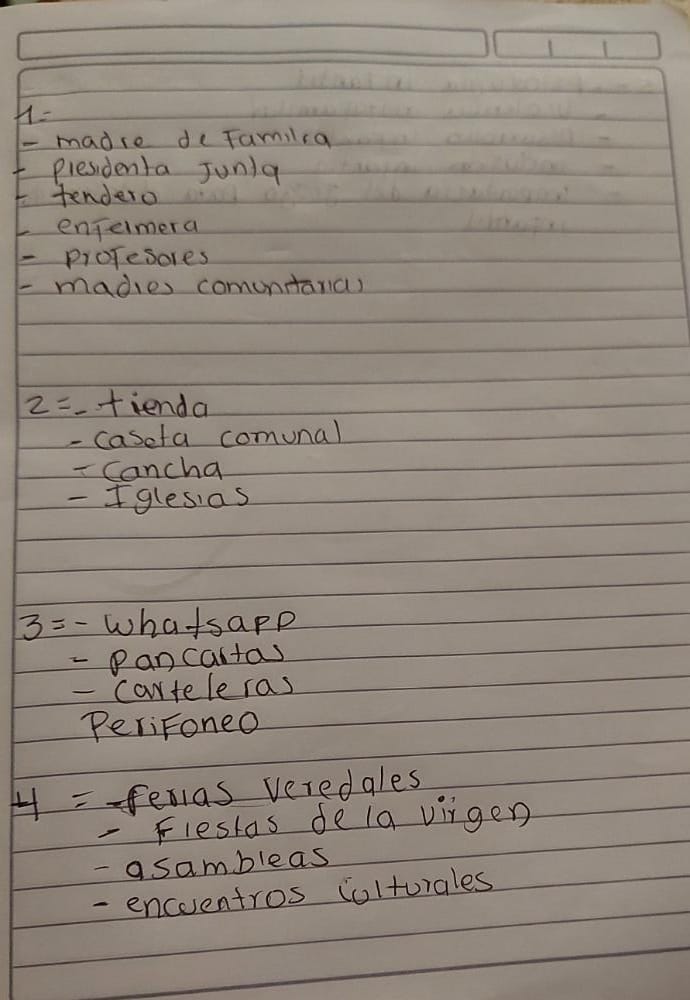 1=
- madre de Familia
- Presidenta Junta
- tendero
- enfermera
- profesores
- madres comunitarias
2=- tienda
- caseta comunal
- Cancha
- Iglesias
3=- Whatsapp
- Pancartas
- Carteleras
Perifoneo
4 = -ferias Veredales
- Fiestas de la virgen
- asambleas
- encuentros culturales